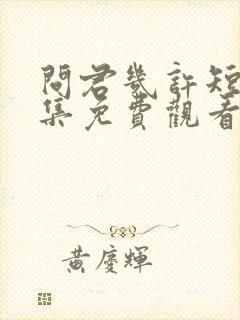 問君幾許短
集免費觀看
黃慶輝